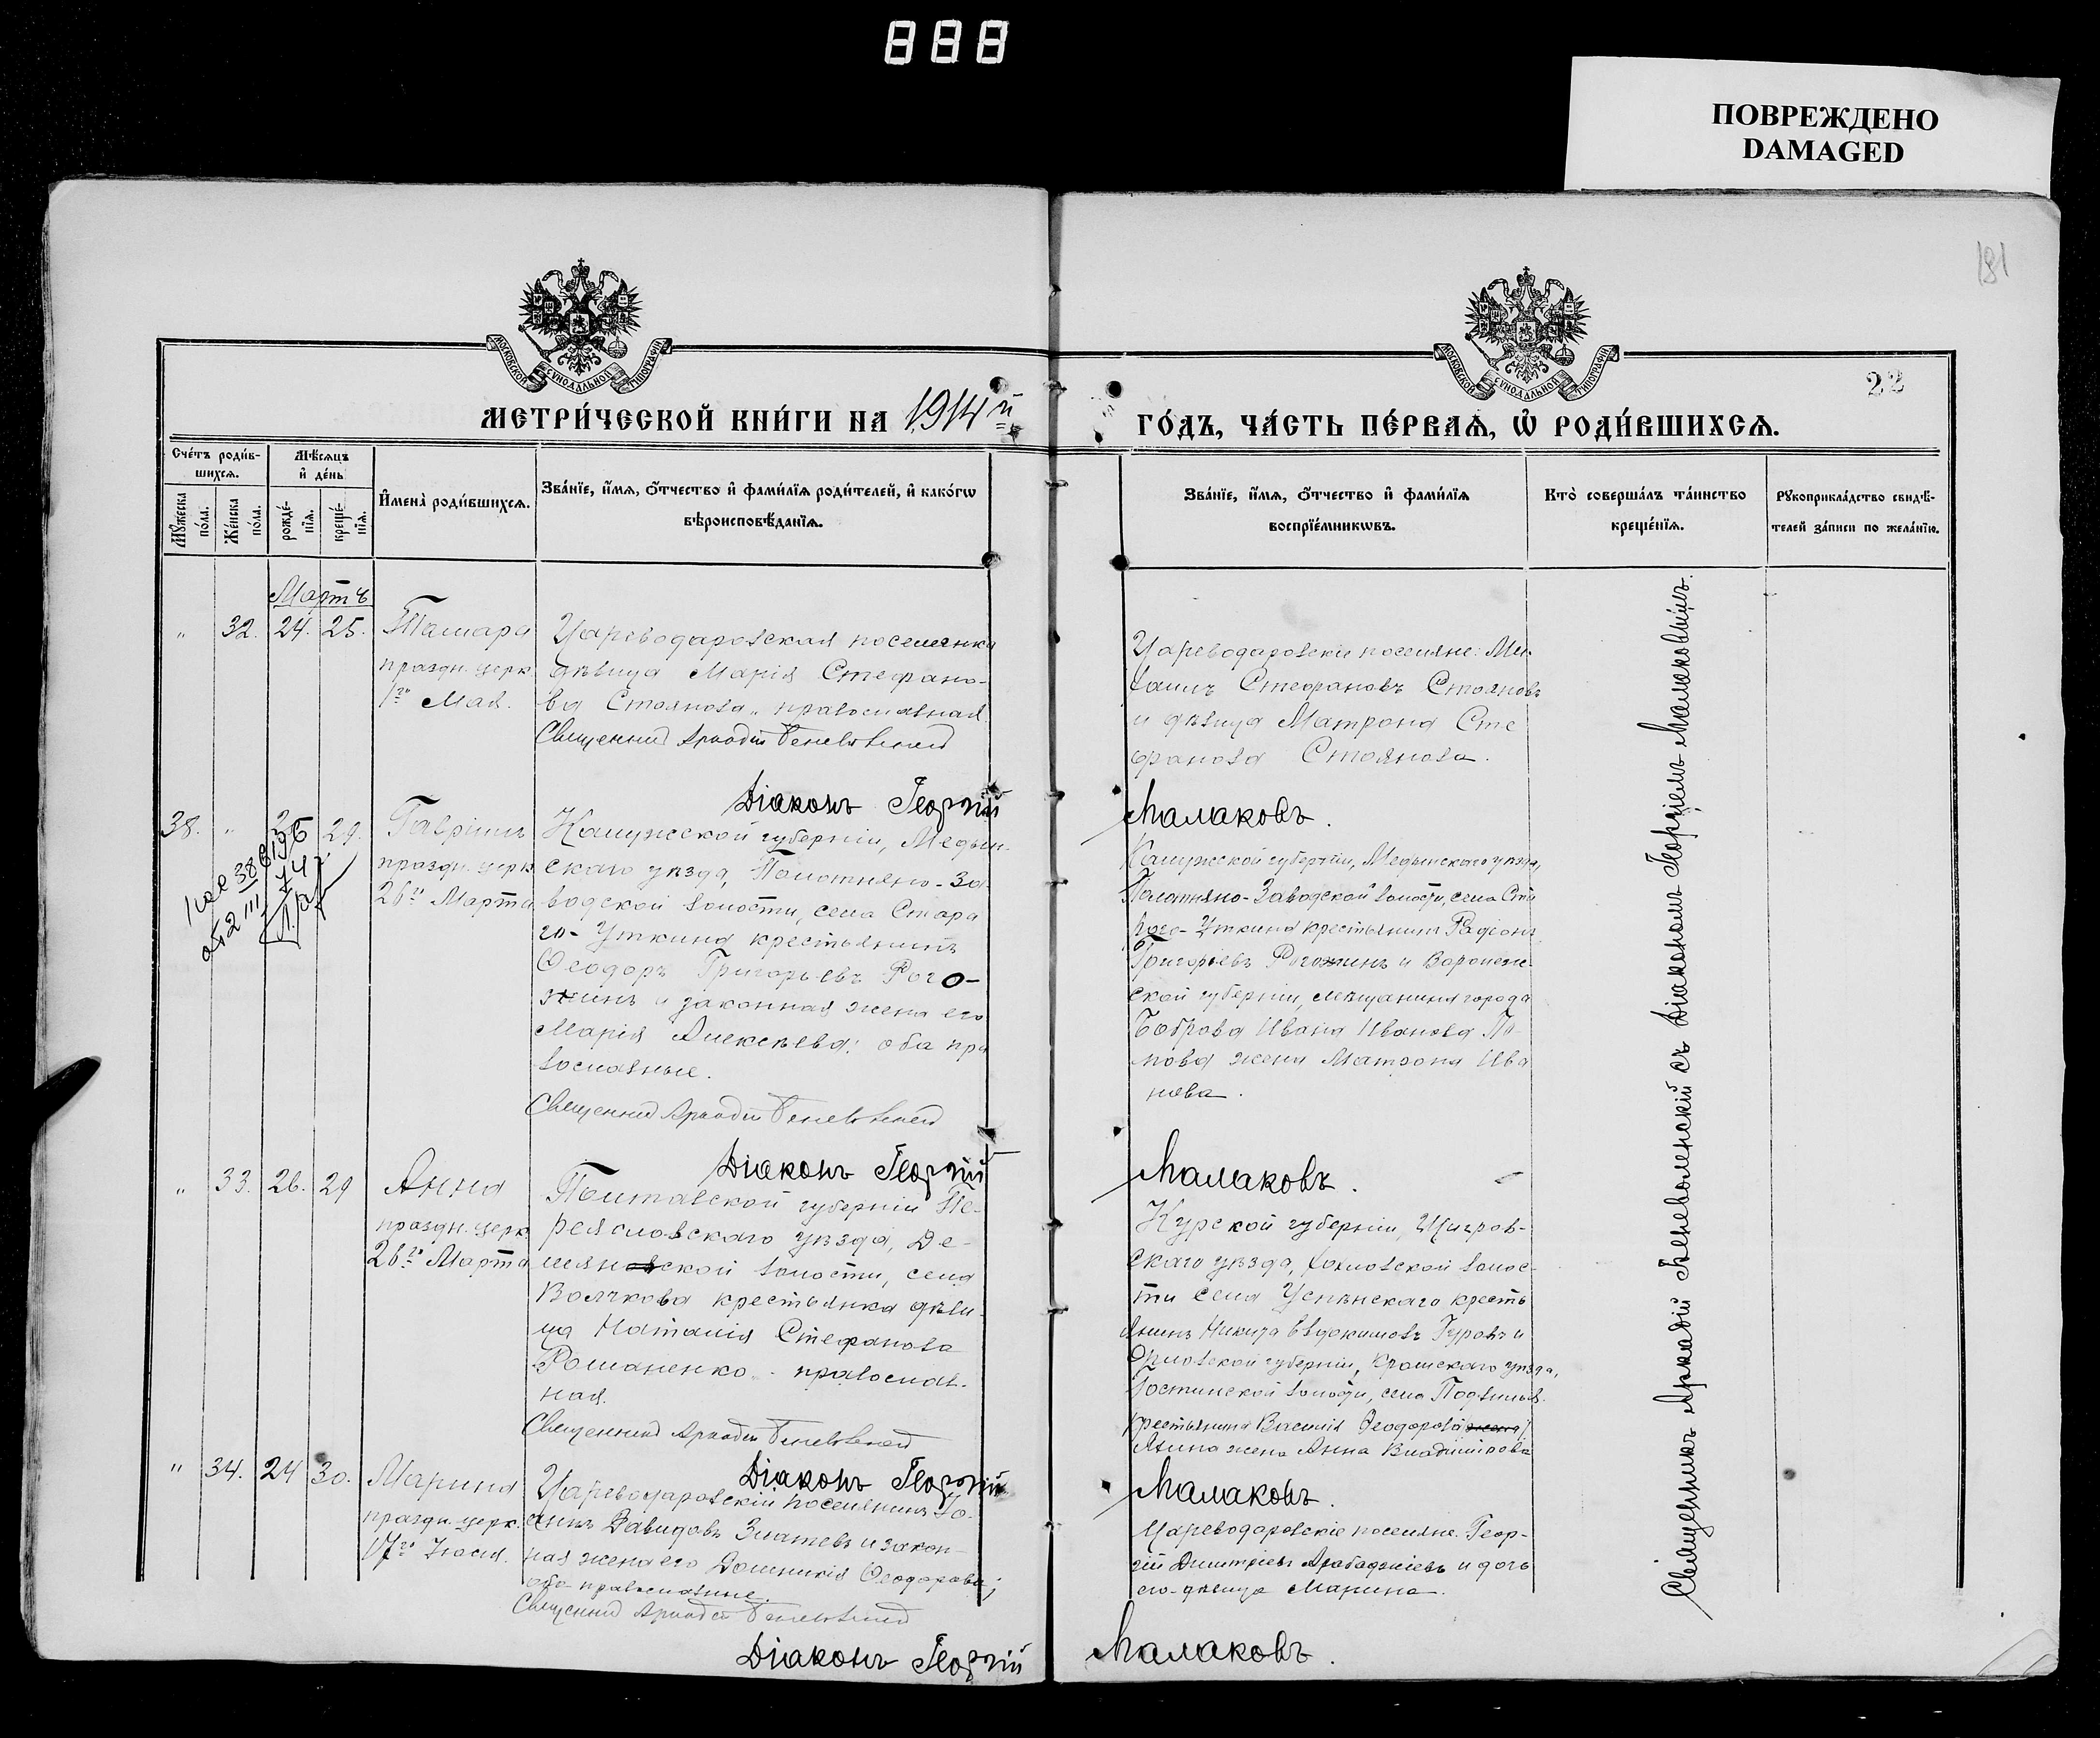 888
ПОВРЕЖДЕНО
DAMAGED
181
22
МОСКОВСКОЙ СѴНОДАЛЬНОЙ ТИПОГРАФІИ
МОСКОВСКОЙ СѴНОДАЛЬНОЙ ТИПОГРАФІИ
МЕТРИ́ЧЕСКОЙ КНИ́ГИ НА 1914й
ГО́ДЪ, ЧА́СТЬ ПЕ́РВАѦ, Ѡ҆ РОДИ́ВШИХСѦ.
Сче́тъ роди́в-
шихсѧ.
Мѣ́сѧцъ
и҆ де́нь
Мꙋ́жеска
по́ла.
Же́нска
по́ла.
рожде́-
нїѧ.
креще́-
нїѧ.
И҆мена̀ роди́вшихсѧ.
Зва́нїе, и҆́мѧ, ѻ҆́тчество и҆ фами́лїѧ роди́телей, и҆ како́гѡ
вѣроисповѣ́данїѧ.
Зва́нїе, и҆́мѧ, ѻ҆́тчество и҆ фами́лїѧ
воспрїе́мникѡвъ.
Кто̀ соверша́лъ та́инство
креще́нїѧ.
Рꙋкоприкла́дство свидѣ́-
телей за́писи по жела́нїю.
Мартъ
" 32. 24. 25. Тамара
праздн. церк.
1го Мая.
Цареводаровская поселянка
дѣвица Марія Стефано-
ва Стоянова, православная.
Священник Аркадій Беневоленскій
Діаконъ Георгій
Малаковъ.
Цареводаровскіе поселяне: Ми-
хаилъ Стефановъ Стояновъ
и дѣвица Матрона Сте
фанова Стоянова.
38. " 29. Гавріилъ
праздн. церк.
26го Марта
Калужской губерніи, Медын-
скаго уѣзда, Полотняно-За-
водской волости, села Стара
го-Уткина крестьянинъ
Ѳеодоръ Григорьевъ Рого-
жинъ и законная жена его
Марія Алексѣева; оба пра
вославные.
Священник Аркадій Беневоленскій
Діаконъ Георгій
Малаковъ.
Калужской губерніи, Медынскаго уѣзда,
Полотняно-Заводской волости, села Ста
раго-Уткина крестьянинъ Радіонъ
Григорьевъ Рогожинъ и Воронеж-
ской губерніи, мѣщанина города
Боброва Ивана Иванова По-
пова жена Матрона Ива
нова.
" 33. 26. 29 Анна
праздн. церк.
26го Марта
Полтавской губерніи Пе-
реяславскаго уѣзда, Де-
мянской волости, села
Волчкова крестьянка дѣви-
ца Наталія Стефанова
Романенко - православ-
ная.
Священник Аркадій Беневоленскій
Діаконъ Георгій
Малаковъ.
Курской губерніи, Щигров-
скаго уѣзда, волос-
ти села Успѣнскаго кресть
янинъ Никита Евдокимовъ Гуровъ и
Орловской губерніи, Кромскаго уѣзда,
Гостинской волости, села
крестьянина Василія Ѳеодорова
жена Анна Владимірова
" 34. 24 30. Марина
праздн. церк.
17го Іюля.
Цареводаровскій поселянинъ Іо-
аннъ Давидовъ Златевъ и закон-
ная жена его Домникія Ѳеодорова;
оба православные.
Священник Аркадій Беневоленскій
Діаконъ Георгій
Малаковъ.
Цареводаровскіе поселяне. Геор-
гій Димитріевъ Арабаджіевъ и дочь
его-дѣвица Марина.
Священникъ Аркадій Беневоленскій съ Діакономъ Георгіемъ Малаковымъ.